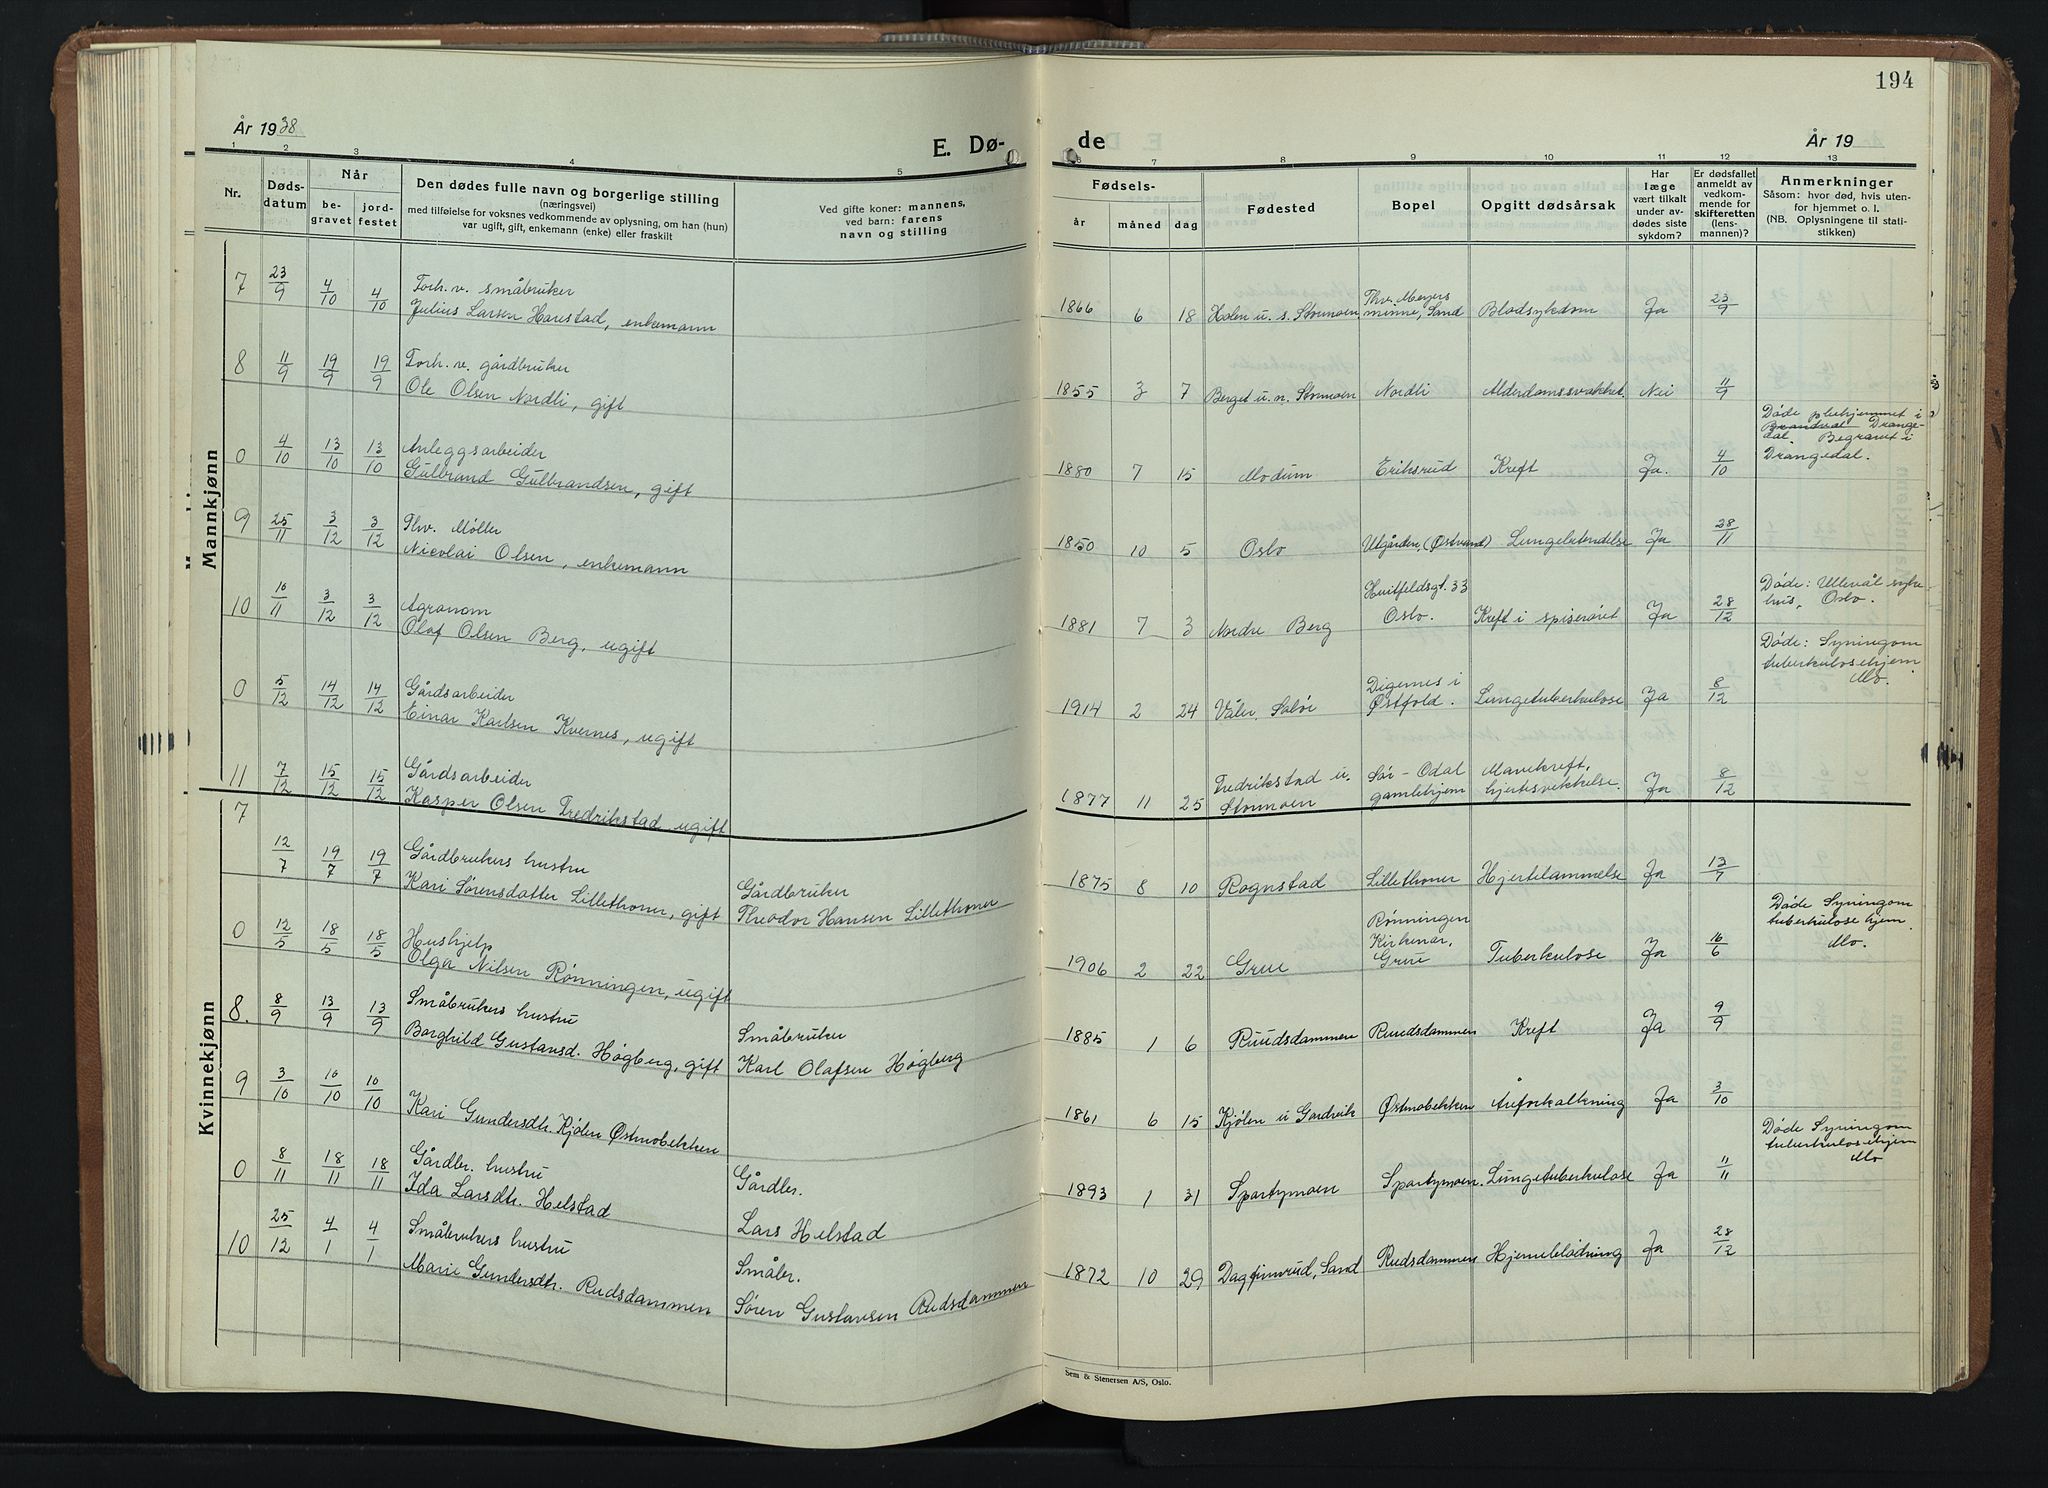 194
År 1938
E. Dø-
de
År 19
1 2 3 4 5
6 7 8 9 10 11 12 13
Nr.
Døds-
datum
Når
be-
gravet
jord-
festet
Den dødes fulle navn og borgerlige stilling
(næringsvei)
med tilføielse for voksnes vedkommende av oplysning, om han (hun)
var ugift, gift, enkemann (enke) eller fraskilt
Ved gifte koner: mannens,
ved barn: farens
navn og stilling
Fødsels-
år
måned
dag
Fødested
Bopel
Opgitt dødsårsak
Har
læge
vært tilkalt
under av-
dødes siste
sykdom?
Er dødsfallet
anmeldt av
vedkom-
mende for
skifteretten
(lens-
mannen)?
Anmerkninger
Såsom: hvor død, hvis uten-
for hjemmet o. l.
(NB. Oplysningene til stati-
stikken)
Mannkjønn
7 23/9 4/10 4/10 Forh. v. småbruker
Julius Larsen Harstad, enkemann
1866 6 18 Holen u. s. Stormoen Thv. Meyers
minne, Sand Blodsykdom Ja 23/9
8 11/9 19/9 19/9 Forh. v. gårdbruker
Ole Olsen Nordli, gift
1855 3 7 Berget u. n. Stormoen Nordli Alderdomssvakhet. Nei 11/9
0 4/10 13/10 13/10 Anleggsarbeider
Gulbrand Gulbrandsen, gift
1880 7 15 Modum Eriksrud Kreft Ja. 4/10
Døde pleihjemmet i
Brandval Drange-
dal. Begravet i
Drangedal.
9 25/11 3/12 3/12 Fhv. Møller
Nicolai Olsen, enkemann
1850 10 5 Oslo Utgården, (Østvand) Lungebetendelse Ja 28/11
10 10/11 3/12 3/12 Agronom
Olaf Olsen Berg, ugift
1881 7 3 Nordre Berg Huitfeldsgt. 33
Oslo. Kreft i spiserøret Ja 28/12
Døde: Ullevål syke-
hus, Oslo.
0 5/12 14/12 14/12 Gårdsarbeider
Einar Karlsen Kvernes, ugift
1914 2 24 Våler, Solør Digernes i
Østfold. Lungetuberkulose Ja 8/12
Døde: Syningom
tuberkulosehjem
Mo.
11 7/12 15/12 15/12 Gårdsarbeider
Kasper Olsen Fredrikstad ugift
1877 11 25 Fredrikstad u.
Stormoen Sør-Odal
gamlehjem Mavekreft,
hjertesvekkelse. Ja 8/12
Kvinnekjønn
7 12/7 19/7 19/7 Gårdbrukers hustru
Kari Sørensdatter Lillethoner, gift
Gårdbruker
Theodor Hansen Lillethoner
1875 8 10 Rognstad Lillethoner Hjertelammelse Ja 13/7
0 12/5 18/5 18/5 Hushjelp
Olga Nilsen Rønningen, ugift
1906 2 22 Grue Rønningen
Kirkenær,
Grue Tuberkulose Ja 16/6
Døde Syningom
tuberkulose hjem
Mo.
8. 8/9 13/9 13/9 Småbrukers hustru
Borghild Gustavsd. Høgberg, gift
Småbruker
Karl Olafsen Høgberg
1885 1 6 Ruudsdammen Ruudsdammen Kreft Ja 9/9
9 3/10 10/10 10/10
Kari Gundersdtr. Kjølen Østmobekken
1861 6 15 Kjølen u Gardvik Østmobekken Åreforkalkning Ja 3/10
0 8/11 18/11 18/11 Gårdbr. hustru
Ida Larsdtr. Helstad
Gårdbr.
Lars Helstad
1893 1 31 Spartymoen Spartymoen. Lungetuberkulose Ja 11/11
Døde Syningom
tuberkulosehjem
Mo
10 25/12 4/1 4/1 Småbrukers hustru
Marie Gundersdtr. Rudsdammen
Småbr.
Søren Gustavsen Rudsdammen
1872 10 29 Dagfinnrud, Sand Rudsdammen Hjerneblødning Ja 28/12
Sem & Stenersen A/S, Oslo.